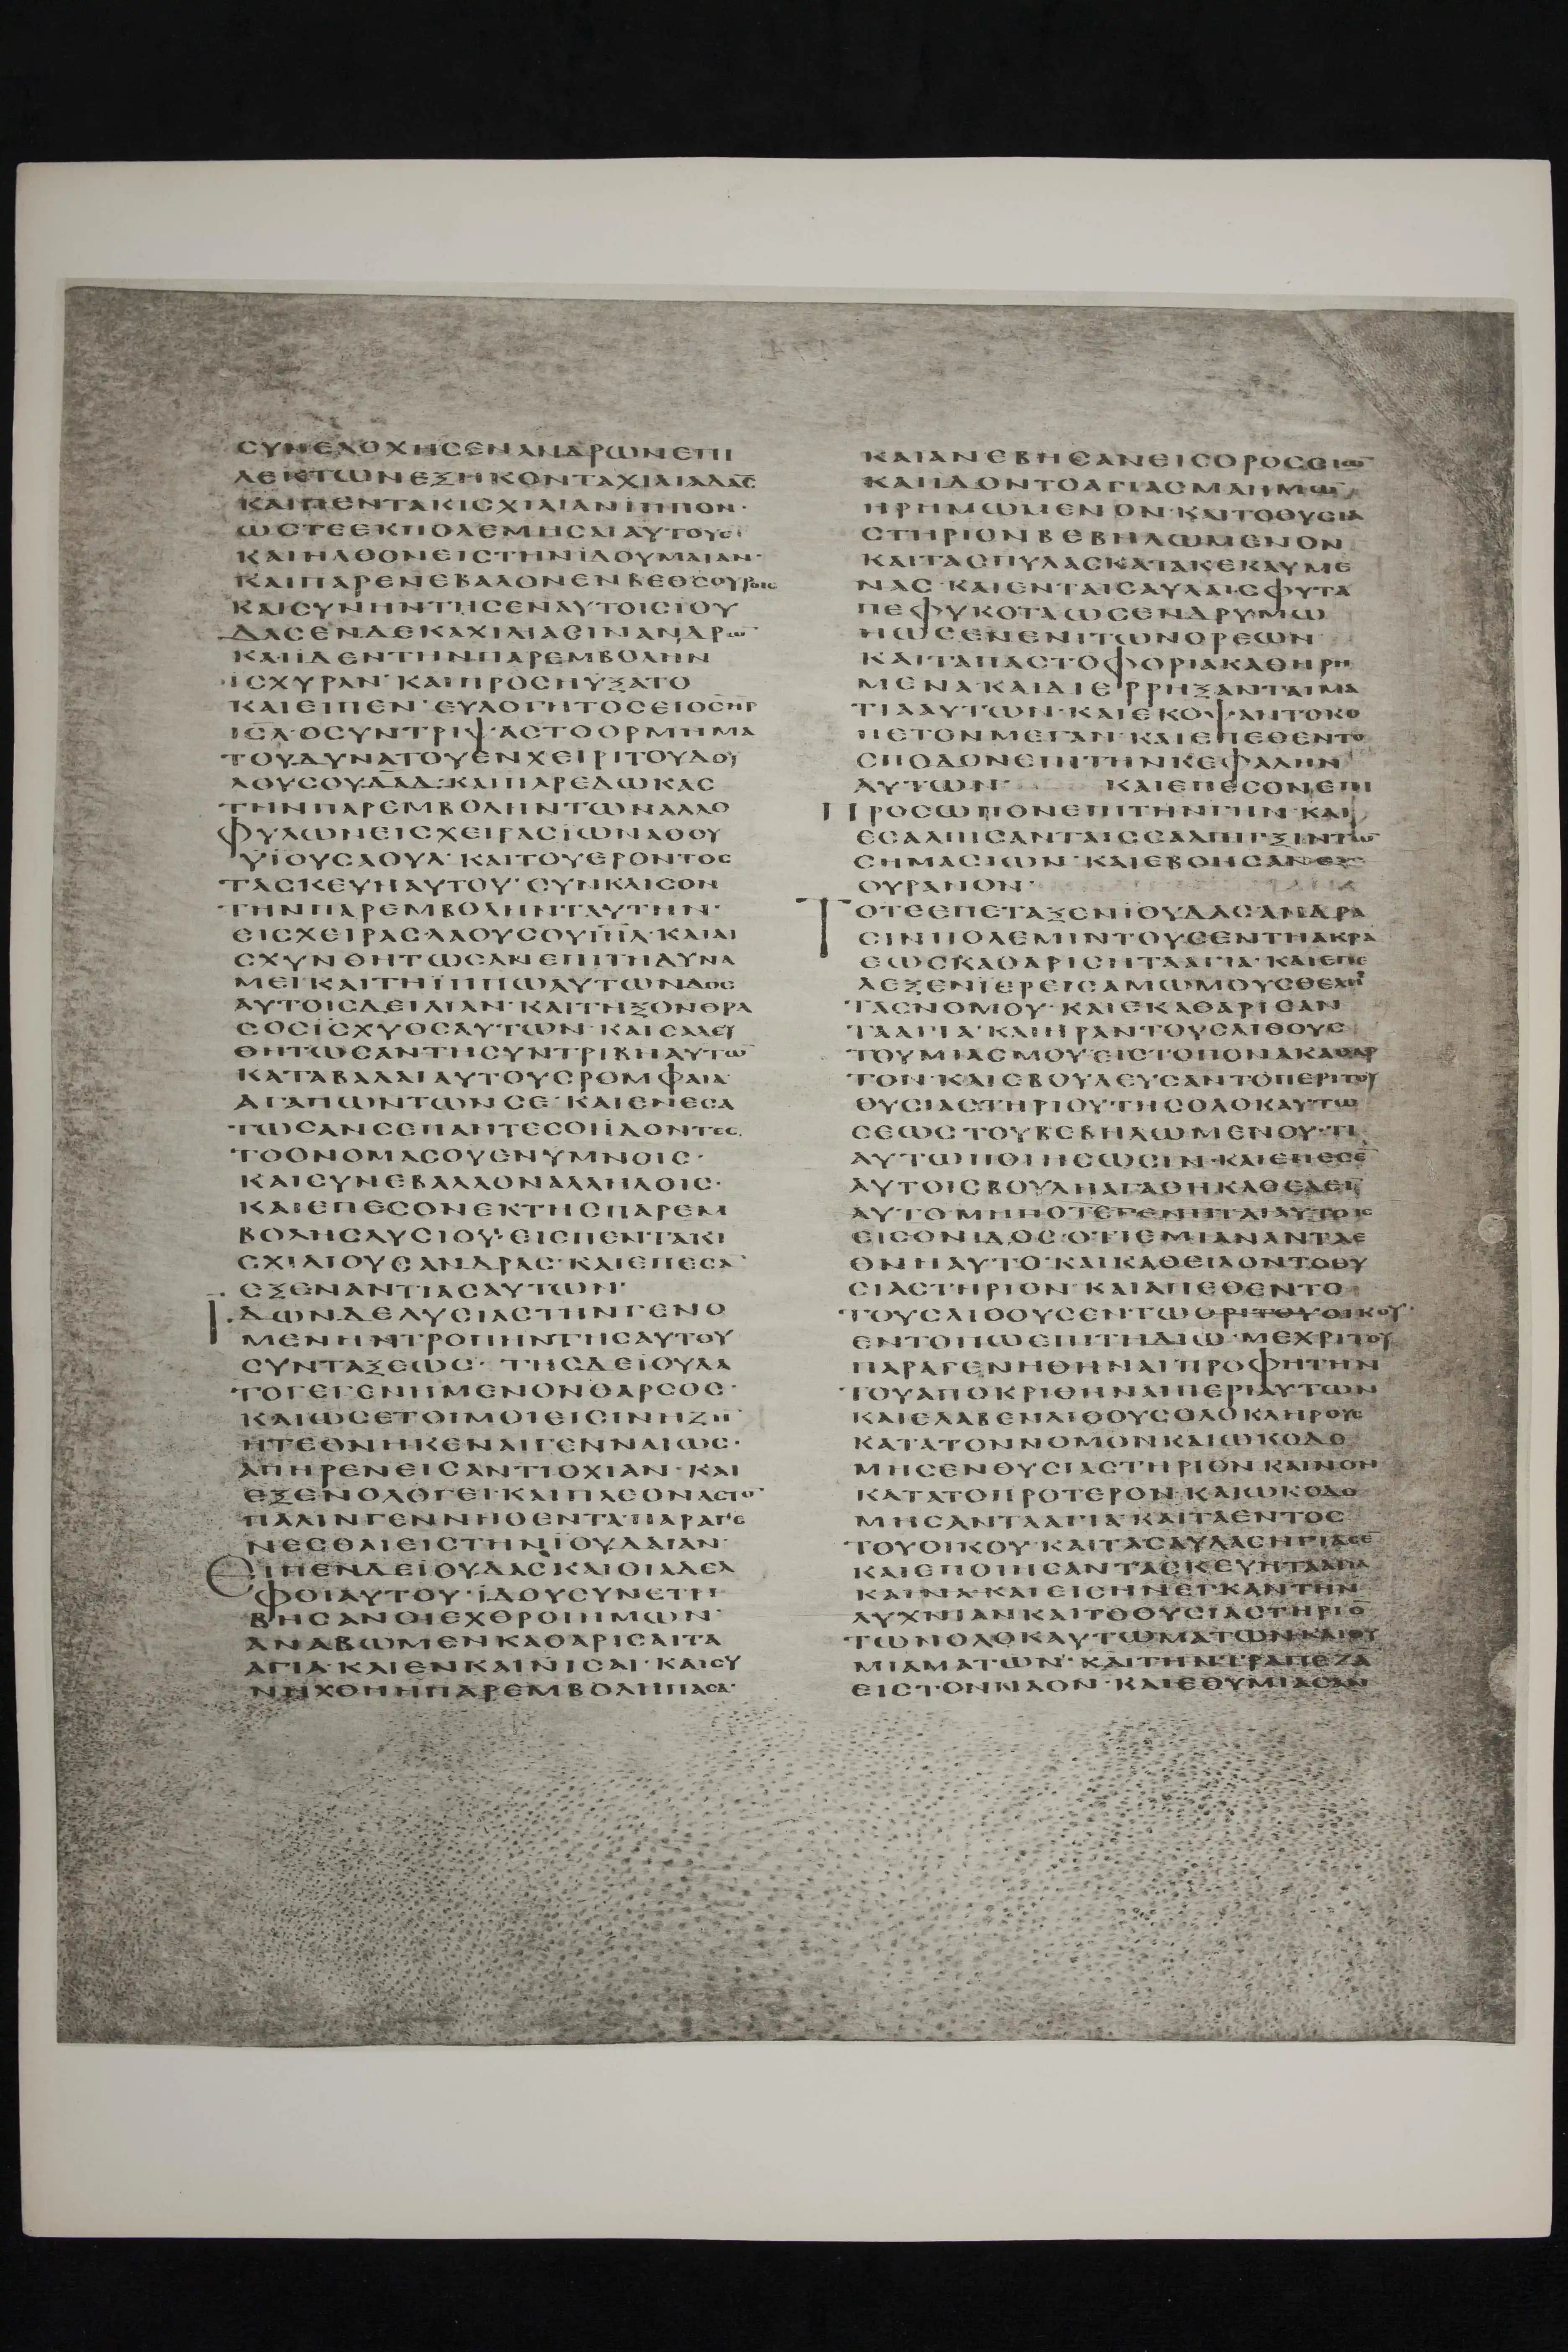 ϹΥΝΕΛΟΧΗϹΕΝΑΝΔΡΩΝΕΠΙ
ΛΕΚΤΩΝΕΞΗΚΟΝΤΑΧΙΛΙΑΔΑϹ
ΚΑΙΠΕΝΤΑΚΙϹΧΙΛΙΑΝΪΠΠΟΝ·
ΩϹΤΕΕΚΠΟΛΕΜΗϹΑΙΑΥΤΟΥϹ·
ΚΑΙΗΛΘΟΝΕΙϹΤΗΝΪΔΟΥΜΑΙΑΝ·
ΚΑΙΠΑΡΕΝΕΒΑΛΟΝΕΝΒΕΘϹΟΥΡΟΙϹ
ΚΑΙϹΥΝΗΝΤΗϹΕΝΑΥΤΟΙϹΪΟΥ
ΔΑϹΕΝΔΕΚΑΧΙΛΙΑϹΙΝΑΝΔΡΩ̄
ΚΑΙΪΔΕΝΤΗΝΠΑΡΕΜΒΟΛΗΝ
ΪϹΧΥΡΑΝ· ΚΑΙΠΡΟϹΗΥΞΑΤΟ
ΚΑΙΕΙΠΕΝ· ΕΥΛΟΓΗΤΟϹΕΙΟϹΗΡ
ΙϹΛ·ΟϹΥΝΤΡΙΨΑϹΤΟΟΡΜΗΜΑ
ΤΟΥΔΥΝΑΤΟΥΕΝΧΕΙΡΙΤΟΥΔΟΥ
ΛΟΥϹΟΥΔΑΔ·ΚΑΙΠΑΡΕΔΩΚΑϹ
ΤΗΝΠΑΡΕΜΒΟΛΗΝΤΩΝΑΛΛΟ
ΦΥΛΩΝΕΙϹΧΕΙΡΑϹΪΩΝΑΘΟΥ
ΥΪΟΥϹΑΟΥΛ· ΚΑΙΤΟΥΕΡΟΝΤΟϹ
ΤΑϹΚΕΥΗΑΥΤΟΥ· ϹΥΝΚΛΙϹΟΝ
ΤΗΝΠΑΡΕΜΒΟΛΗΝΤΑΥΤΗΝ·
ΕΙϹΧΕΙΡΑϹΛΑΟΥϹΟΥΙΗΛ·ΚΑΙΑΙ
ϹΧΥΝΘΗΤΩϹΑΝΕΠΙΤΗΔΥΝΑ
ΜΕΙΚΑΙΤΗΪΠΠΩΑΥΤΩΝΔΟϹ
ΑΥΤΟΙϹΔΕΙΛΙΑΝ· ΚΑΙΤΗΞΟΝΘΡΑ
ϹΟϹΪϹΧΥΟϹΑΥΤΩΝ·ΚΑΙϹΑΛΕΥ
ΘΗΤΩϹΑΝΤΗϹΥΝΤΡΙΒΗΑΥΤΩ̄
ΚΑΤΑΒΑΛΛΑΙΑΥΤΟΥϹΡΟΜΦΑΙΑ
ΑΓΑΠΩΝΤΩΝϹΕ· ΚΑΙΕΝΕϹΑ
ΤΩϹΑΝϹΕΠΑΝΤΕϹΟΙΪΔΟΝΤΕϹ
ΤΟΟΝΟΜΑϹΟΥΕΝΥΜΝΟΙϹ·
ΚΑΙϹΥΝΕΒΑΛΛΟΝΑΛΛΗΛΟΙϹ·
ΚΑΙΕΠΕϹΟΝΕΚΤΗϹΠΑΡΕΜ
ΒΟΛΗϹΛΥϹΙΟΥ·ΕΙϹΠΕΝΤΑΚΙ
ϹΧΙΛΙΟΥϹΑΝΔΡΑϹ·ΚΑΙΕΠΕϹᾹ
ΕΞΕΝΑΝΤΙΑϹΑΥΤΩΝ·
ΪΔΩΝΔΕΛΥϹΙΑϹΤΗΝΓΕΝΟ
ΜΕΝΗΝΤΡΟΠΗΝΤΗϹΑΥΤΟΥ
ϹΥΝΤΑΞΕΩϹ· ΤΗϹΔΕΪΟΥΔΑ
ΤΟΓΕΓΕΝΗΜΕΝΟΝΘΑΡϹΟϹ·
ΚΑΙΩϹΕΤΟΙΜΟΙΕΙϹΙΝΗΖΗ̄
ΗΤΕΘΝΗΚΕΝΑΙΓΕΝΝΑΙΩϹ·
ΑΠΗΡΕΝΕΙϹΑΝΤΙΟΧΙΑΝ·ΚΑΙ
ΕΞΕΝΟΛΟΓΕΙ·ΚΑΙΠΛΕΟΝΑϹΤΟ̄
ΠΑΛΙΝΓΕΝΝΗΘΕΝΤΑ·ΠΑΡΑΓΕ
ΝΕϹΘΑΙΕΙϹΤΗΝΪΟΥΔΑΙΑΝ·
ΕΙΠΕΝΔΕΪΟΥΔΑϹΚΑΙΟΙΑΔΕΛ
ΦΟΙΑΥΤΟΥ·ΪΔΟΥϹΥΝΕΤΡΙ
ΒΗϹΑΝΟΙΕΧΘΡΟΙΗΜΩΝ·
ΑΝΑΒΩΜΕΝΚΑΘΑΡΙϹΑΙΤΑ
ΑΓΙΑ·ΚΑΙΕΝΚΑΙΝΙϹΑΙ·ΚΑΙϹΥ
ΝΗΧΘΗΗΠΑΡΕΜΒΟΛΗΠΑϹΑ·
ΚΑΙΑΝΕΒΗϹΑΝΕΙϹΟΡΟϹϹΕΙΩ̄
ΚΑΙΪΔΟΝΤΟΑΓΙΑϹΜΑΗΜΩ̄
ΗΡΗΜΩΜΕΝΟΝ·ΚΑΙΤΟΘΥϹΙΑ
ϹΤΗΡΙΟΝΒΕΒΗΛΩΜΕΝΟΝ
ΚΑΙΤΑϹΠΥΛΑϹΚΑΤΑΚΕΚΑΥΜΕ
ΝΑϹ·ΚΑΙΕΝΤΑΙϹΑΥΛΑΙϹΦΥΤΑ
ΠΕΦΥΚΟΤΑΩϹΕΝΔΡΥΜΩ
ΗΩϹΕΝΕΝΙΤΩΝΟΡΕΩΝ
ΚΑΙΤΑΠΑϹΤΟΦΟΡΙΑΚΑΘΗΡΗ
ΜΕΝΑ·ΚΑΙΔΙΕΡΡΗΞΑΝΤΑΙΜΑ
ΤΙΑΑΥΤΩΝ·ΚΑΙΕΚΟΨΑΝΤΟΚΟ
ΠΕΤΟΝΜΕΓΑΝ·ΚΑΙΕΠΕΘΕΝΤΟ
ϹΠΟΔΟΝΕΠΙΤΗΝΚΕΦΑΛΗΝ
ΑΥΤΩΝ· ΚΑΙΕΠΕϹΟΝΕΠΙ
ΠΡΟϹΩΠΟΝΕΠΙΤΗΝΓΗΝ·ΚΑΙ
ΕϹΑΛΠΙϹΑΝΤΑΙϹϹΑΛΠΙΓΞΙΝΤΩ̄
ϹΗΜΑϹΙΩΝ·ΚΑΙΕΒΟΗϹΑΝΕΙϹ
ΟΥΡΑΝΟΝ·
ΤΟΤΕΕΠΕΤΑΞΕΝΪΟΥΔΑϹΑΝΔΡΑ
ϹΙΝΠΟΛΕΜΙΝΤΟΥϹΕΝΤΗΑΚΡΑ
ΕΩϹΚΑΘΑΡΙϹΗΤΑΑΓΙΑ·ΚΑΙΕΠΕ
ΛΕΞΕΝΪΕΡΕΙϹΑΜΩΜΟΥϹΘΕΛΗ
ΤΑϹΝΟΜΟΥ·ΚΑΙΕΚΑΘΑΡΙϹΑΝ
ΤΑΑΓΙΑ·ΚΑΙΗΡΑΝΤΟΥϹΛΙΘΟΥϹ
ΤΟΥΜΙΑϹΜΟΥΕΙϹΤΟΠΟΝΑΚΑΘΑΡ
ΤΟΝ·ΚΑΙΕΒΟΥΛΕΥϹΑΝΤΟΠΕΡΙΤΟΥ
ΘΥϹΙΑϹΤΗΡΙΟΥΤΗϹΟΛΟΚΑΥΤΩ
ϹΕΩϹΤΟΥΒΕΒΗΛΩΜΕΝΟΥ·ΤΙ
ΑΥΤΩΠΟΙΗϹΩϹΙΝ·ΚΑΙΕΠΕϹΕ̄
ΑΥΤΟΙϹΒΟΥΛΗΑΓΑΘΗΚΑΘΕΛΕῙ
ΑΥΤΟΜΗΠΟΤΕΓΕΝΗΤΑΙΑΥΤΟΙϹ
ΕΙϹΟΝΙΔΟϹ·ΟΤΙΕΜΙΑΝΑΝΤΑΕ
ΘΝΗΑΥΤΟ·ΚΑΙΚΑΘΕΙΛΟΝΤΟΘΥ
ϹΙΑϹΤΗΡΙΟΝ·ΚΑΙΑΠΕΘΕΝΤΟ
ΤΟΥϹΛΙΘΟΥϹΕΝΤΩΟΡΙΤΟΥΟΙΚΟΥ·
ΕΝΤΟΠΩΕΠΙΤΗΔΙΩ·ΜΕΧΡΙΤΟΥ
ΠΑΡΑΓΕΝΗΘΗΝΑΙΠΡΟΦΗΤΗΝ
ΤΟΥΑΠΟΚΡΙΘΗΝΑΙΠΕΡΙΑΥΤΩΝ
ΚΑΙΕΛΑΒΕΝΛΙΘΟΥϹΟΛΟΚΛΗΡΟΥϹ
ΚΑΤΑΤΟΝΝΟΜΟΝΚΑΙΩΚΟΔΟ
ΜΗϹΕΝΘΥϹΙΑϹΤΗΡΙΟΝΚΑΙΝΟΝ
ΚΑΤΑΤΟΠΡΟΤΕΡΟΝ·ΚΑΙΩΚΟΔΟ
ΜΗϹΑΝΤΑΑΓΙΑ·ΚΑΙΤΑΕΝΤΟϹ
ΤΟΥΟΙΚΟΥ·ΚΑΙΤΑϹΑΥΛΑϹΗΓΙΑϹΕ̄
ΚΑΙΕΠΟΙΗϹΑΝΤΑϹΚΕΥΗΤΑΑΓΙΑ
ΚΑΙΝΑ·ΚΑΙΕΙϹΗΝΕΓΚΑΝΤΗΝ
ΛΥΧΝΙΑΝΚΑΙΤΟΘΥϹΙΑϹΤΗΡΙΟ̄
ΤΩΝΟΛΟΚΑΥΤΩΜΑΤΩΝΚΑΙΘΥ
ΜΙΑΜΑΤΩΝ·ΚΑΙΤΗΝΤΡΑΠΕΖΑ
ΕΙϹΤΟΝΝΑΟΝ·ΚΑΙΕΘΥΜΙΑϹΑΝ